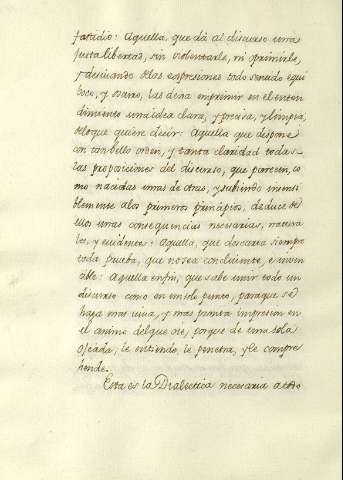 fastidio: Aquella, que dá al discurso cierta
justa libertad, sin violentarle, ni oprimirle,
y desviando delas expresiones todo sentido equi
boco, y obscuro, las dexa imprimir en el enten
dimiento una idea clara, y precisa, y limpia,
delo que quiere decir: Aquella que dispone
con tan bello orden, y tanta claridad todas
las proposiciones del discurso, que parecen, co
mo nacidas unas de otras, y subiendo insensi
blemente alos primeros principios, deduce de
ellos unas consequencias necesarias,
y evidentes: Aquella, que descarta siempre
toda prueba, que no sea concluiente, e inven
cible: Aquella enfin, que sabe unir todo un
discurso como en un solo punto, para que se
haga mas viva, y mas pronta impresion en
el animo del que oie, porque de una sola
ojeada, le entiende, le penetra, y le compre
hende.
Esta es la Dialectica necesaria